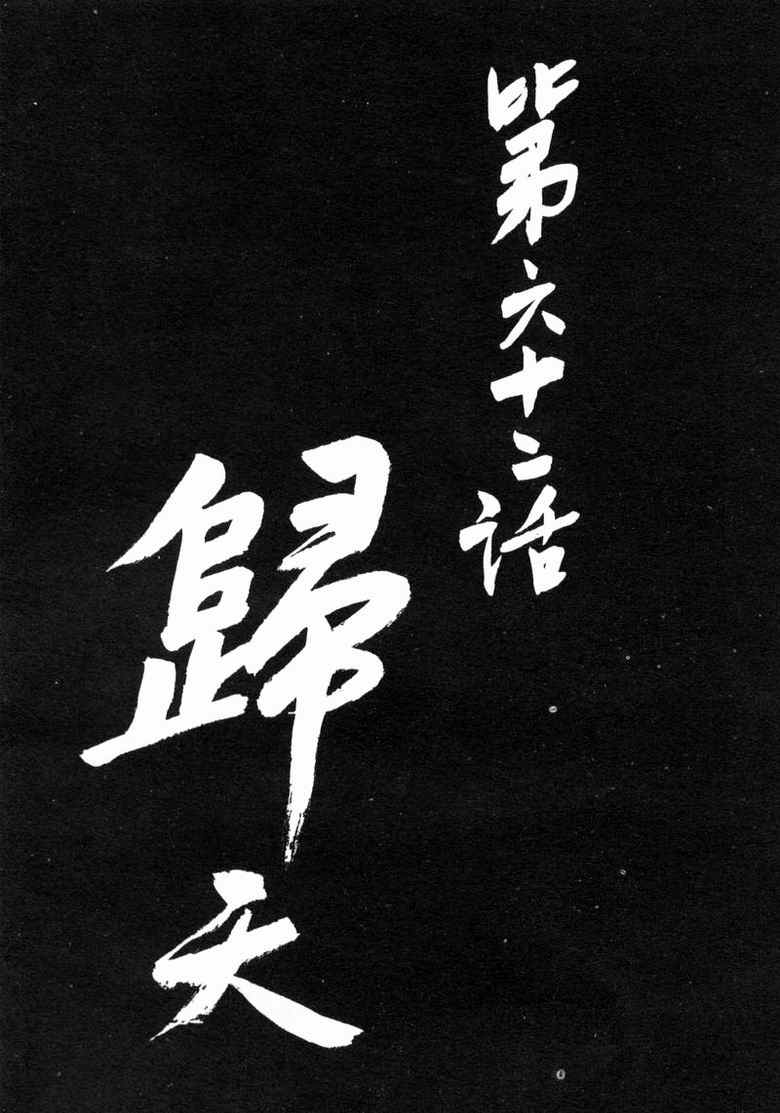 第六十二話
歸天